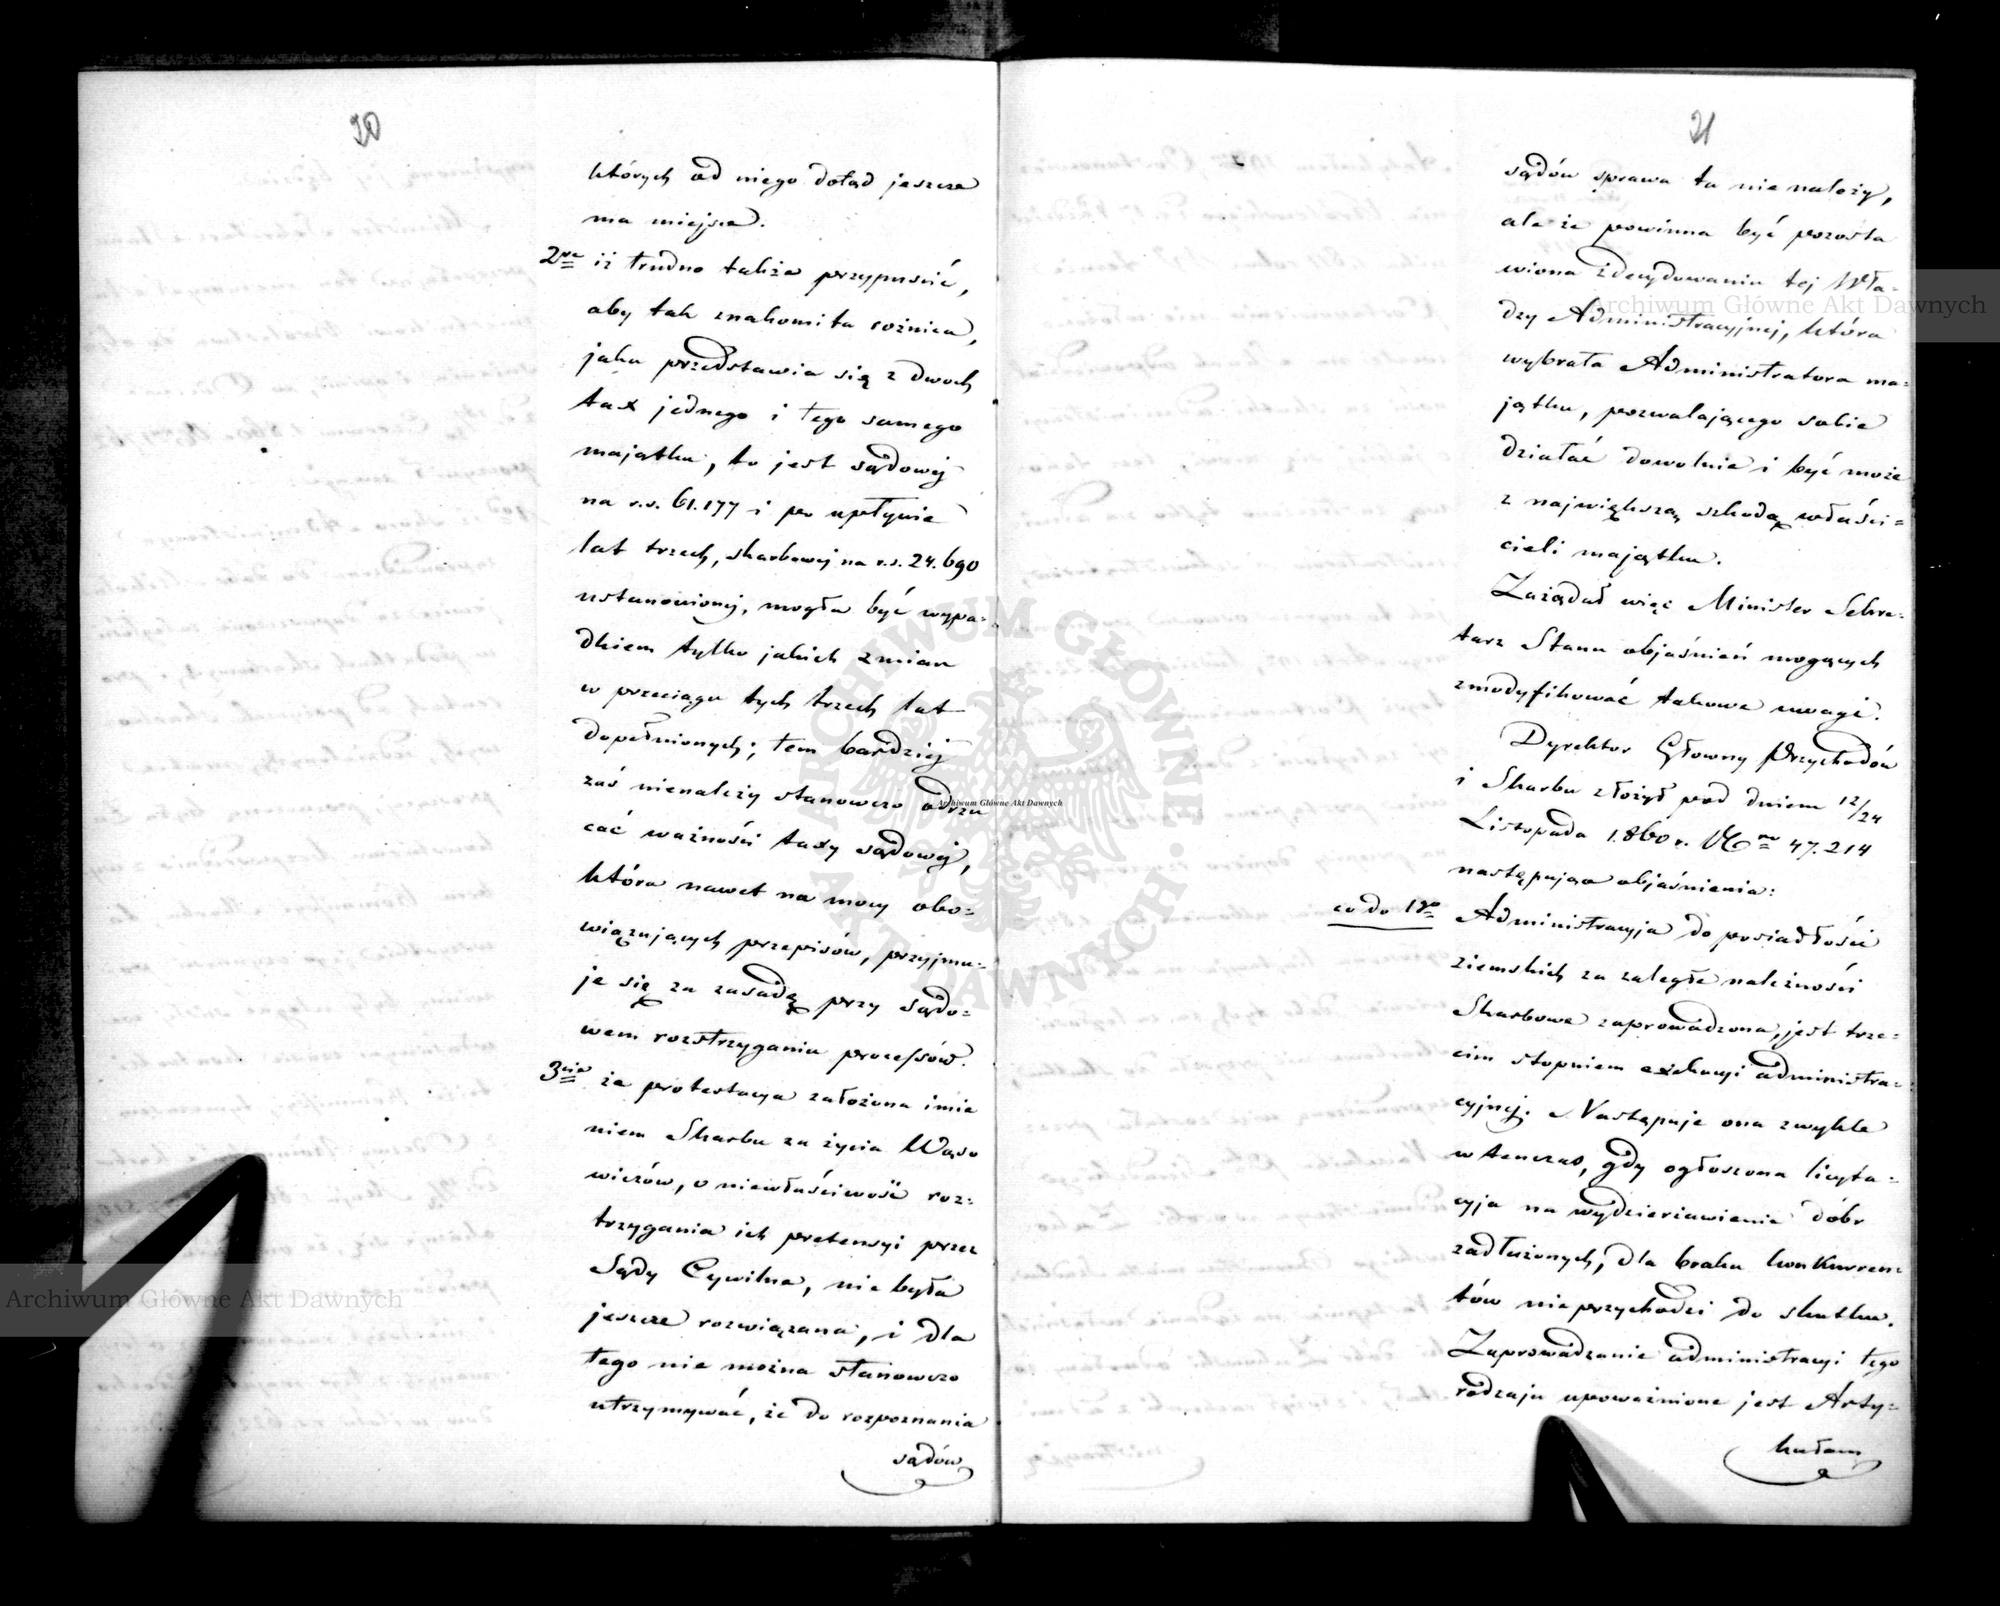 20
których od niego dotąd jeszcze
ma miejsce.
2re iż trudno także przypuścić,
aby tak znakomita rożnica,
jaka przedstawia się z dwoch
tax jednego i tego samego
majątku, to jest sądowej
na r.s. 61.177 i po upłynie
lat trzech, skarbowej na r.s. 24.690
ustanowionej, mogła być wypa-
dkiem tylko jakich zmian
w przeciągu tych trzech lat
dopełnionych; tem bardziej
zaś nienależy stanowczo odrzu
cać ważności taxy sądowej,
która nawet na mocy obo-
wiązujących przepisów, przyjmu-
je się za zasadę przy sądo-
wem rozstrzyganiu processów.
3cie że protestacya założona imie
niem Skarbu za życia Wąso
wiczów, o niewłaściwość roz-
trzygania ich pretensyi przez
Sądy Cywilne, nie była
jeszcze rozwiązana, i dla
tego nie można stanowczo
utrzymywać, że do rozpoznania
sądów
21
sądów sprawa ta nie należy,
ale że powinna być pozosta
wiona zdecydowaniu tej Wła-
dzy Administracyjnej, która
wybrała Administratora ma-
jątku, pozwalającego sobie
działać dowolnie i być może
z największą szkodą właści-
cieli majątku.
Zażądał więc Minister Sekre-
tarz Stanu objaśnień mogących
zmodyfikować takowe uwagi.
Dyrektor Głowny Przychodów
i Skarbu złożył pod dniem 12/24
Listopada 1860 r. No 47.214
następujące objaśnienia:
co do 1go Administracyja do posiadłości
ziemskich za zaległe należności
Skarbowe zaprowadzona, jest trze-
cim stopniem exekucyi administra-
cyjnej. Następuje ona zwykle
wtenczas, gdy ogłoszona licyta-
cyja na wydzierżawienie dóbr
zadłużonych, dla braku konkurren-
tów nie przychodzi do skutku.
Zaprowadzanie administracyi tego
rodzaju upoważnione jest Arty-
kułem
ARCHIWUM GŁÓWNE AKT DAWNYCH
Archiwum Główne Akt Dawnych
Archiwum Główne Akt Dawnych
Archiwum Główne Akt Dawnych